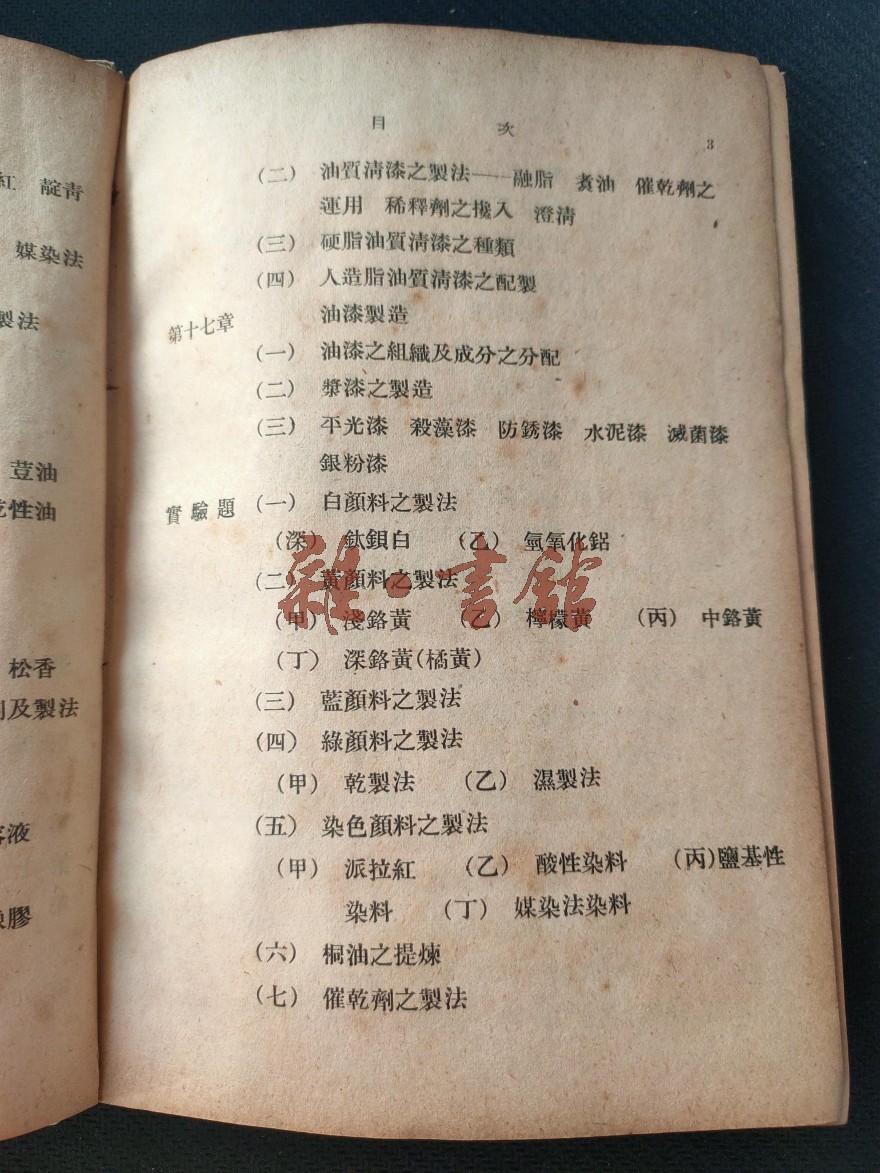 紅 靛青
媒染法
製法
荳油
乾性油
松香
及製法
溶液
橡膠
目 次 3
(二) 油質清漆之製法——融脂 煑油 催乾劑之
運用 稀釋劑之攙入 澄清
(三) 硬脂油質清漆之種類
(四) 人造脂油質清漆之配製
第十七章 油漆製造
(一) 油漆之組織及成分之分配
(二) 漿漆之製造
(三) 平光漆 殺藻漆 防銹漆 水泥漆 滅菌漆
銀粉漆
實驗題 (一) 白顏料之製法
(深) 鈦鋇白 (乙) 氫氧化鋁
(二) 黃顏料之製法
(甲) 淺鉻黃 (乙) 檸檬黃 (丙) 中鉻黃
(丁) 深鉻黃(橘黃)
(三) 藍顏料之製法
(四) 綠顏料之製法
(甲) 乾製法 (乙) 濕製法
(五) 染色顏料之製法
(甲) 派拉紅 (乙) 酸性染料 (丙)鹽基性
染料 (丁) 媒染法染料
(六) 桐油之提煉
(七) 催乾劑之製法
雜·書館